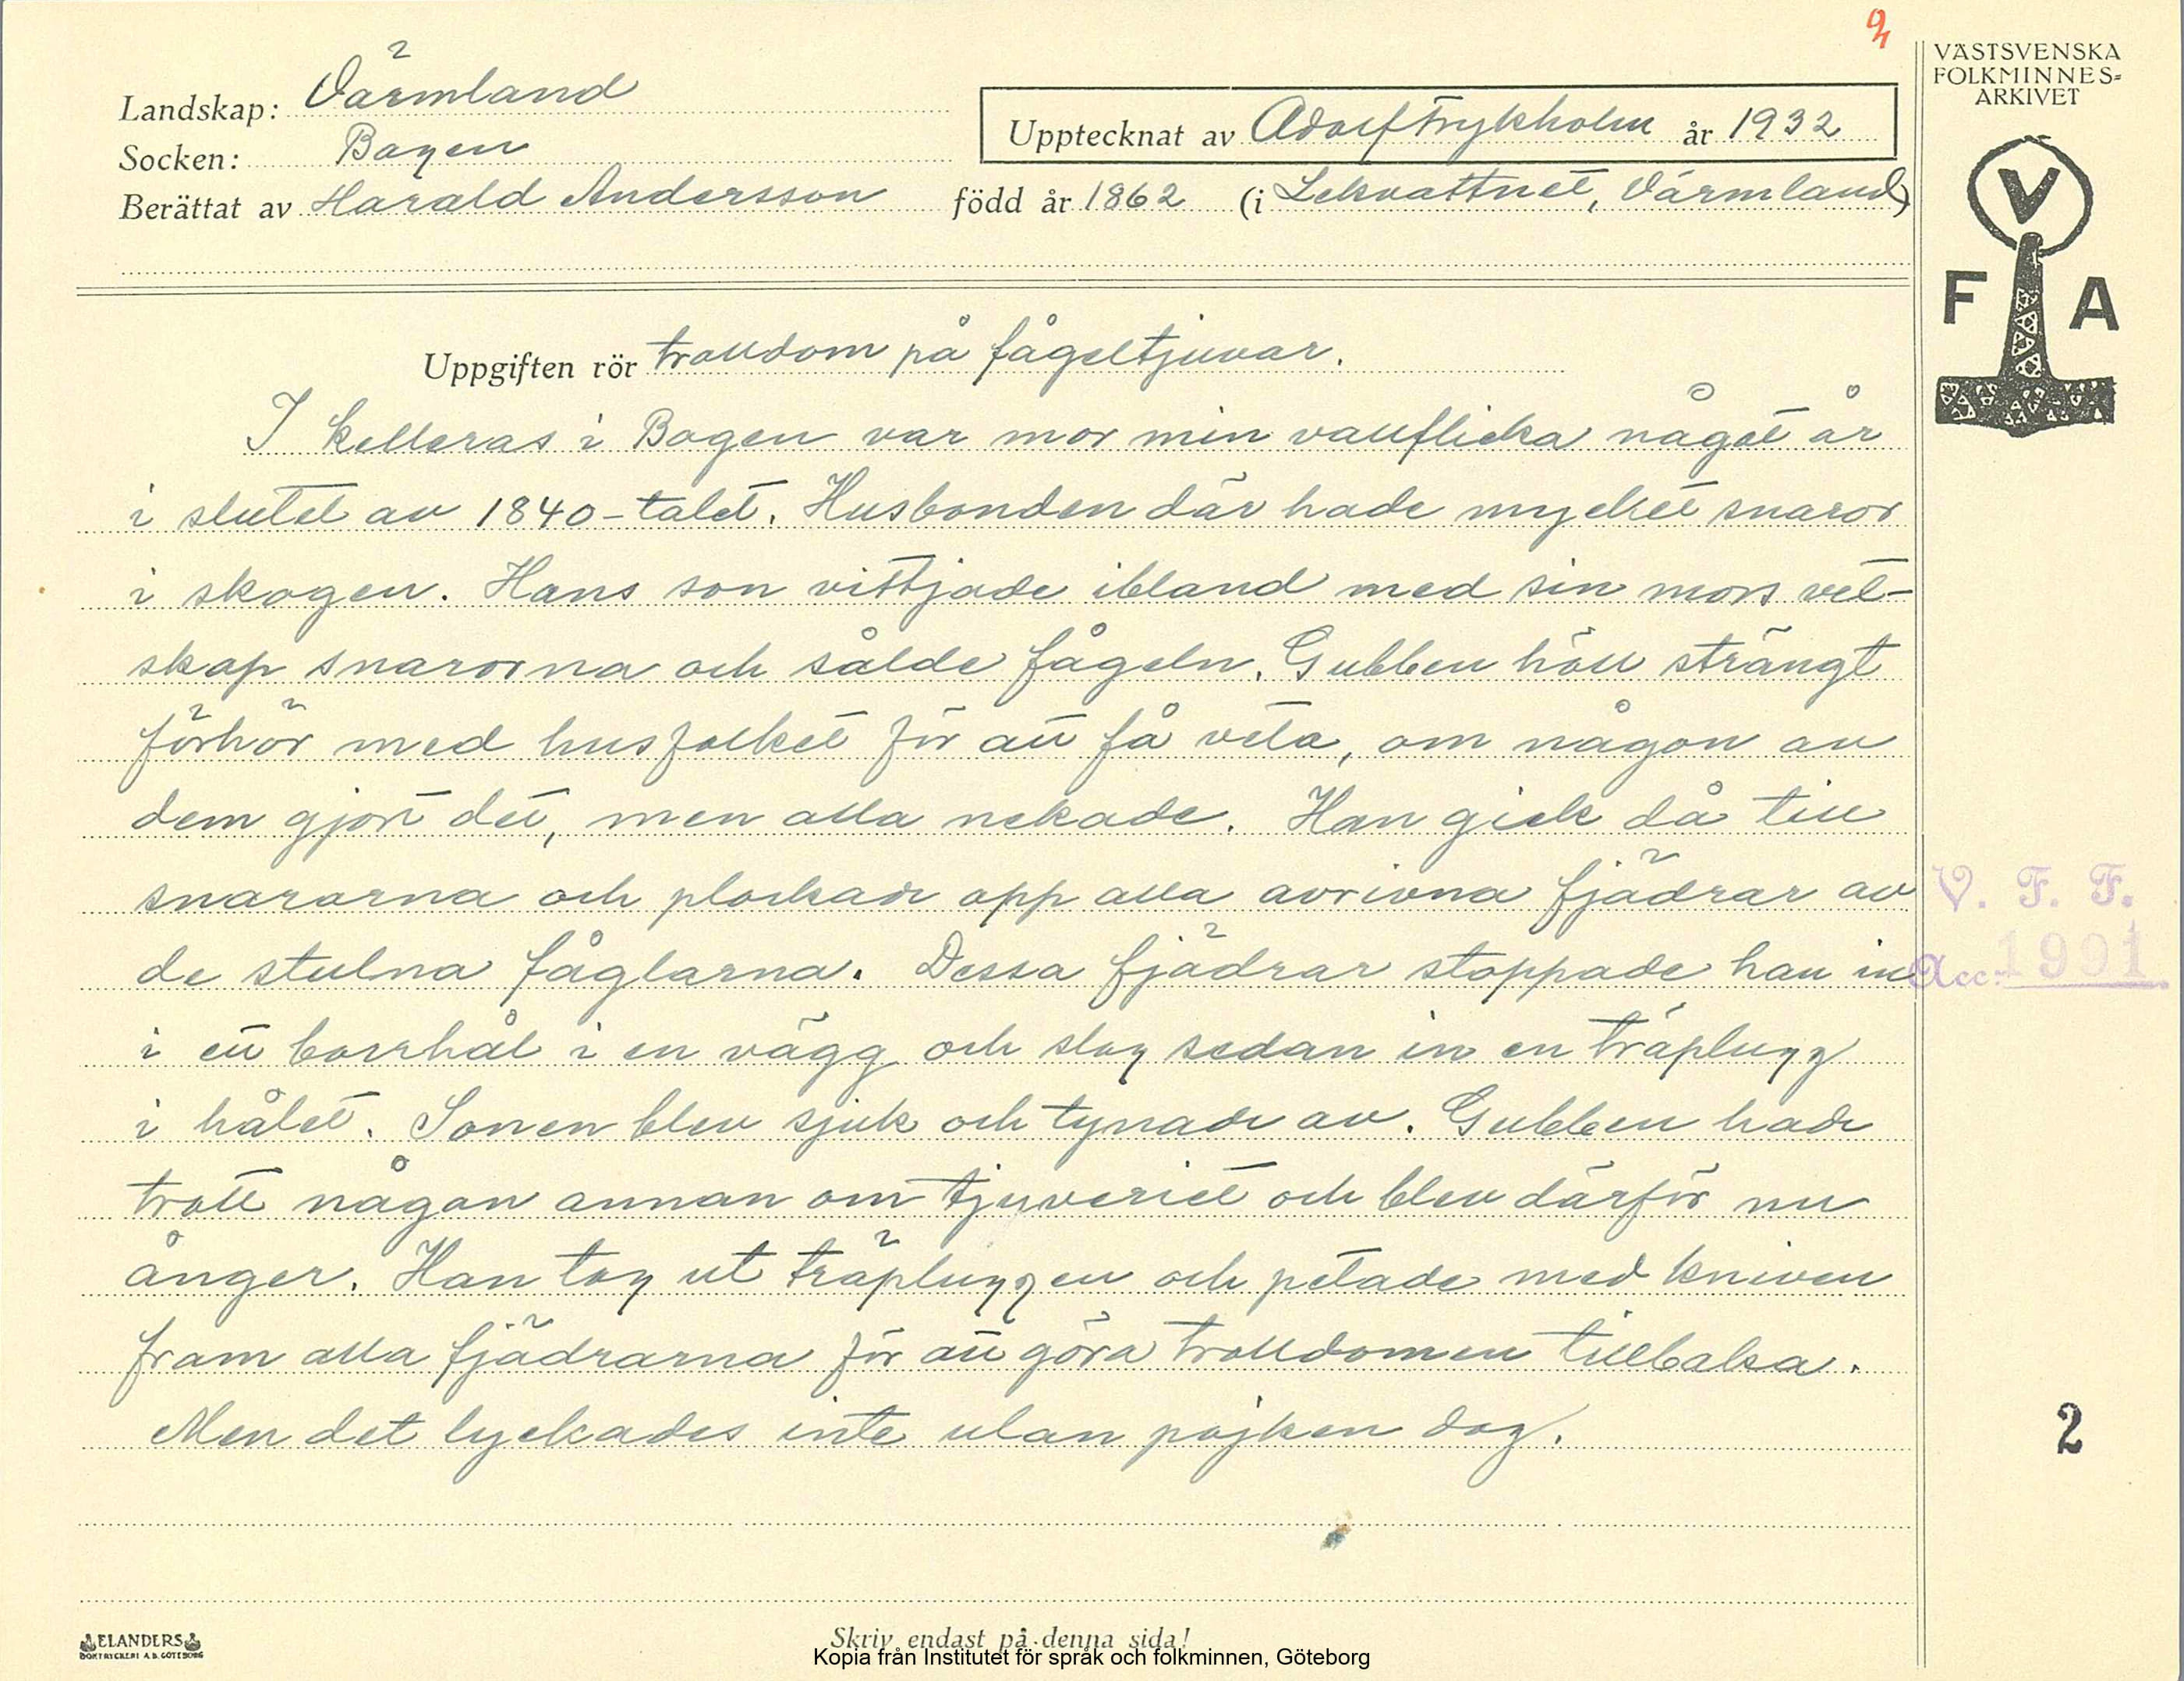 Landskap: Värmland
Socken: Bogen
Berättat av Harald Andersson född år 1862 (i Lekvattnet, Värmland)
Upptecknat av Adolf Frykholm år 1932
VÄSTSVENSKA
FOLKMINNES=
ARKIVET
V
F A
Uppgiften rör trolldom på fågeltjuvar.
I Kelleras i Bogen var mor min vallflicka något år
i slutet av 1840-talet. Husbonden där hade mycket snaror
i skogen. Hans son vittjade ibland med sin mors vet-
skap snarorna och sålde fågeln. Gubben höll strängt
förhör med husfolket för att få veta, om någon av
dem gjort det, men alla nekade. Han gick då till
snarorna och plockade opp alla avrivna fjädrar av
de stulna fåglarna. Dessa fjädrar stoppade han in
i ett borrhål i en vägg och slog sedan in en träplugg
i hålet. Sonen blev sjuk och tynade av. Gubben hade
trott någon annan om tjuveriet och blev därför nu
ånger. Han tog ut träpluggen och petade med kniven
fram alla fjädrarna för att göra trolldomen tillbaka.
Men det lyckades inte utan pojken dog.
V. F. F.
Acc. 1991
2
ELANDERS
BOKTRYCKERI A.B. GÖTEBORG
Skriv endast på denna sida!
Kopia från Institutet för språk och folkminnen, Göteborg